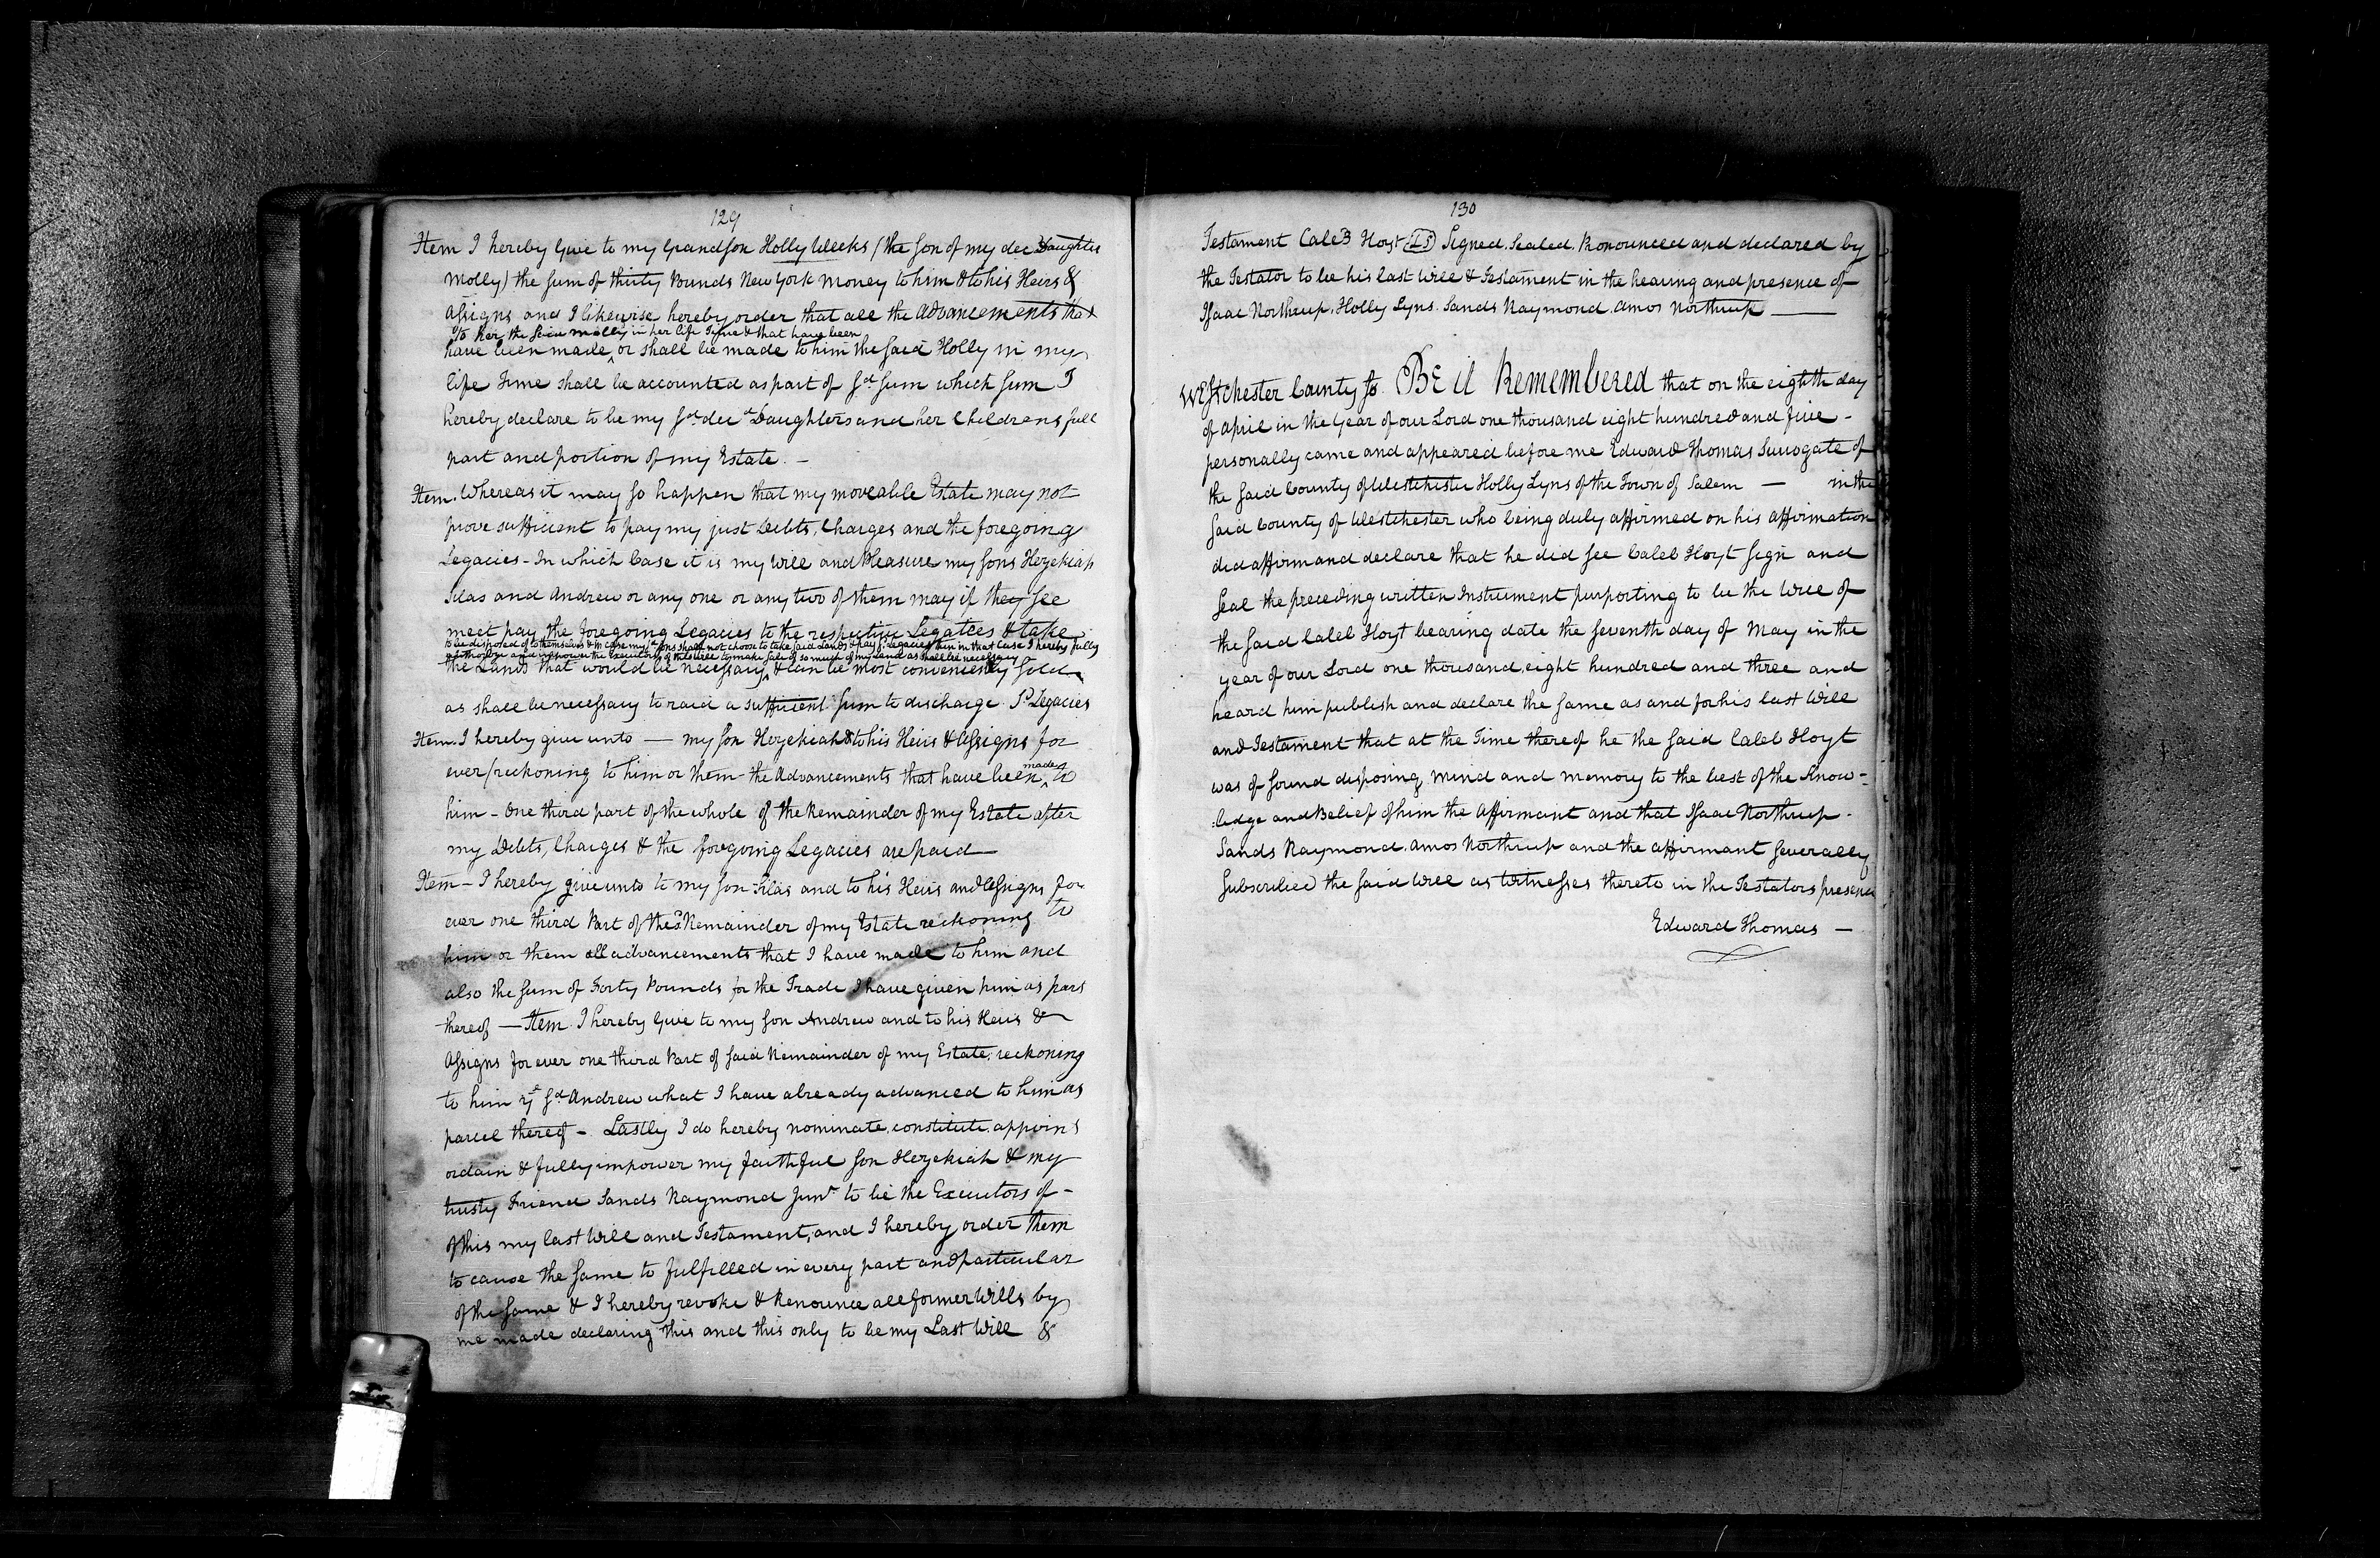 129
Item I hereby Give to my Grandson Holly Weeks (the son of my dec.d Daughter
Molly) the sum of thirty Pounds New York Money to him & to his Heirs &
Assigns and I likewise hereby order that all the Advancements that
to her the said Molly in her life Time & that have been
have been made ‸ or shall be made to him the said Holly in my
life Time shall be accounted as part of sd. sum which sum I
hereby declare to be my sd. decd. Daughters and her Childrens full
part and portion of my Estate. —
Item. Whereas it may so happen that my moveable Estate may not
prove sufficient to pay my just Debts, Charges and the foregoing
Legacies - In which Case it is my will and Pleasure my sons Hezekiah
Silas and Andrew or any one or any two of them may if they see
meet pay the foregoing Legacies to the respective Legatees & take
to be disposed of to themselves & in Case my sd. sons shall not choose to take said Lands & pay sd. Legacies then in that Case I hereby fully
authorize and impower the Executors of this Will to make sale of so much of my Land as shall be necessary
the Lands that would be necessary ‸ & can be most conveniently sold
as shall be necessary to raid a sufficient sum to discharge Sd. Legacies
Item. I hereby give unto — my son Hezekiah & to his Heirs & Assigns for
ever (reckoning to him or them the Advancements that have been ‸made to
him - One third part of the whole of the Remainder of my Estate after
my Debts, Charges & the foregoing Legacies are paid —
Item - I hereby give unto to my son Silas and to his Heirs and Assigns for
ever one third Part of the sd. Remainder of my Estate reckoning to
him or them all advancements that I have made to him and
also the sum of Forty Pounds for the Trade I have given him as part
thereof — Item. I hereby Give to my son Andrew and to his Heirs &
Assigns for ever one third Part of said Remainder of my Estate, reckoning
to him ye. sd. Andrew what I have already advanced to him as
parcel thereof - Lastly I do hereby nominate, constitute, appoint
ordain & fully impower my faithful son Hezekiah & my
trusty Friend Sands Raymond Junr. to be the Executors of -
of this my last Will and Testament, and I hereby order them
to cause the same to fulfilled in every part and particular
of the same & I hereby revoke & Renounce all former Wills by
me made declaring this and this only to be my Last Will &
130
Testament Caleb Hoyt (LS) Signed. Sealed. Pronounced and declared by
the Testator to be his last Will & Testament in the hearing and presence of
Isaac Northrup. Holly Lyns. Sands Raymond. Amos Northrup —
Westchester County Ss. Be it Remembered that on the eighth day
of April in the Year of our Lord one thousand eight hundred and five -
personally came and appeared before me Edward Thomas Surrogate of
the said County of Westchester Holly Lyns of the Town of Salem — in the
said County of Westchester who being duly affirmed on his affirmation
did affirm and declare that he did see Caleb Hoyt sign and
seal the preceding written Instrument purporting to be the Will of
the said Caleb Hoyt bearing date the seventh day of May in the
year of our Lord one thousand eight hundred and three and
heard him publish and declare the same as and for his last Will
and Testament that at the Time thereof he the said Caleb Hoyt
was of sound disposing mind and memory to the best of the Know-
ledge and Belief of him the Affirmant and that Isaac Northrup.
Sands Raymond. Amos Northrup and the affirmant severally
subscribed the said Will as Witnesses thereto in the Testators presence
Edward Thomas —